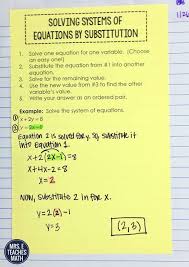 1/26
SOLVING SYSTEMS OF
EQUATIONS BY SUBSTITUTION
1. Solve one equation for one variable. (Choose
an easy one!)
2. Substitute the equation from #1 into another
equation.
3. Solve for the remaining value.
4. Use the new value from #3 to find the other
variable's value.
5. Write your answer as an ordered pair.
Example: Solve the system of equations.
① x + 2y = 8
② y = 2x - 1
Equation 2 is solved for y. So, substitute it
into Equation 1.
x + 2(2x-1) = 8
x + 4x - 2 = 8
x = 2
Now, substitute 2 in for x.
y = 2(2) - 1
y = 3
(2,3)
MRS. E
TEACHES
MATH